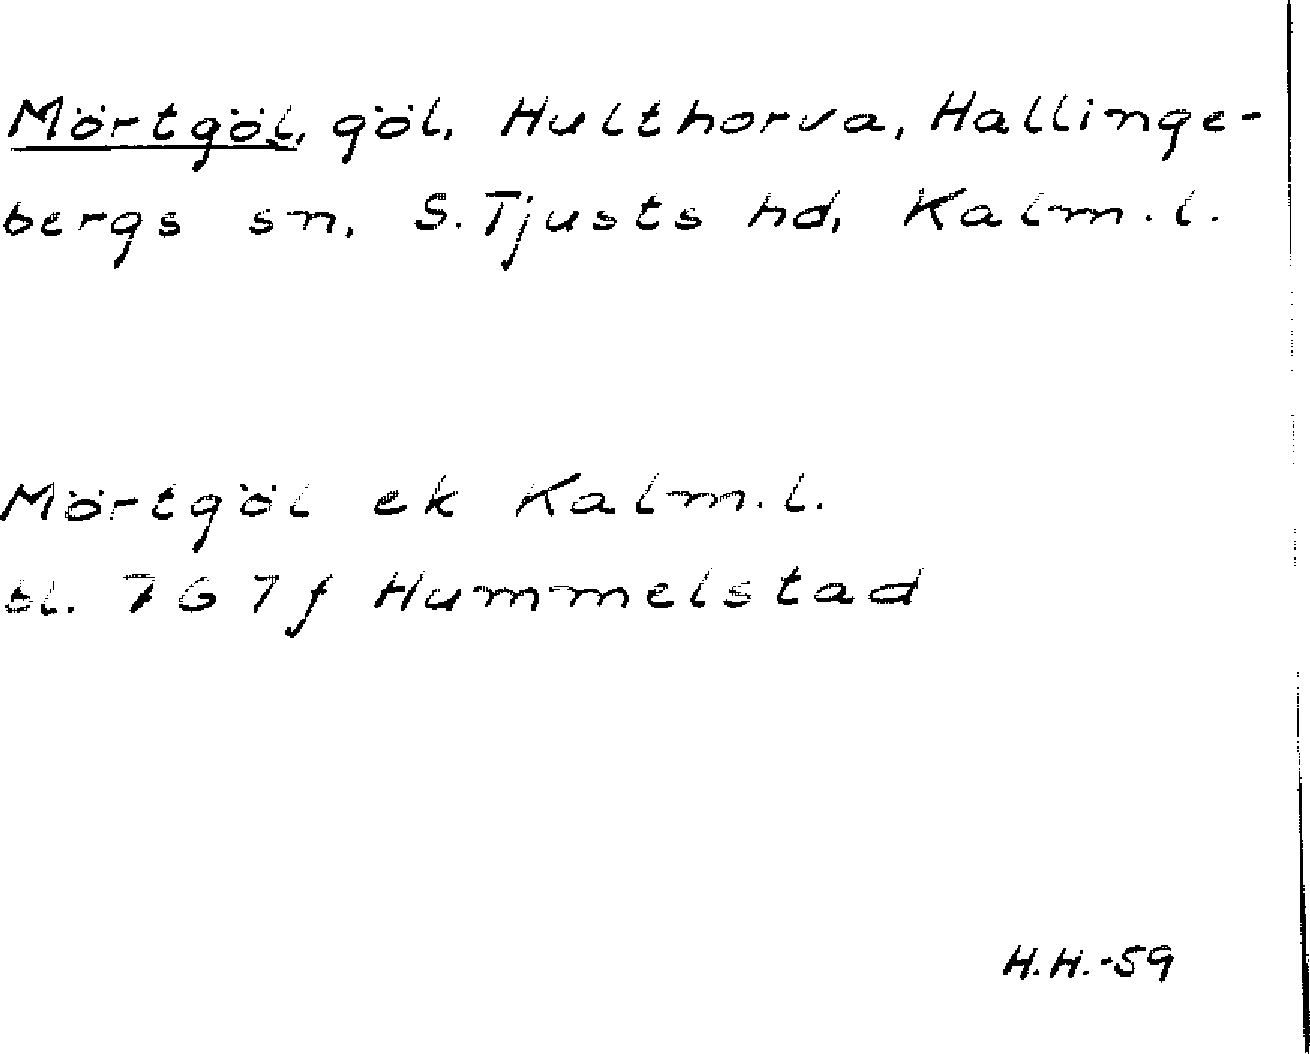 Mörtgöl, göl, Hulthorva, Hallinge-
bergs sn, S. Tjusts hd, Kalm. l.
Mörtgöl ek Kalm. l.
bl. 7G7f Hummelstad
H.H.-59